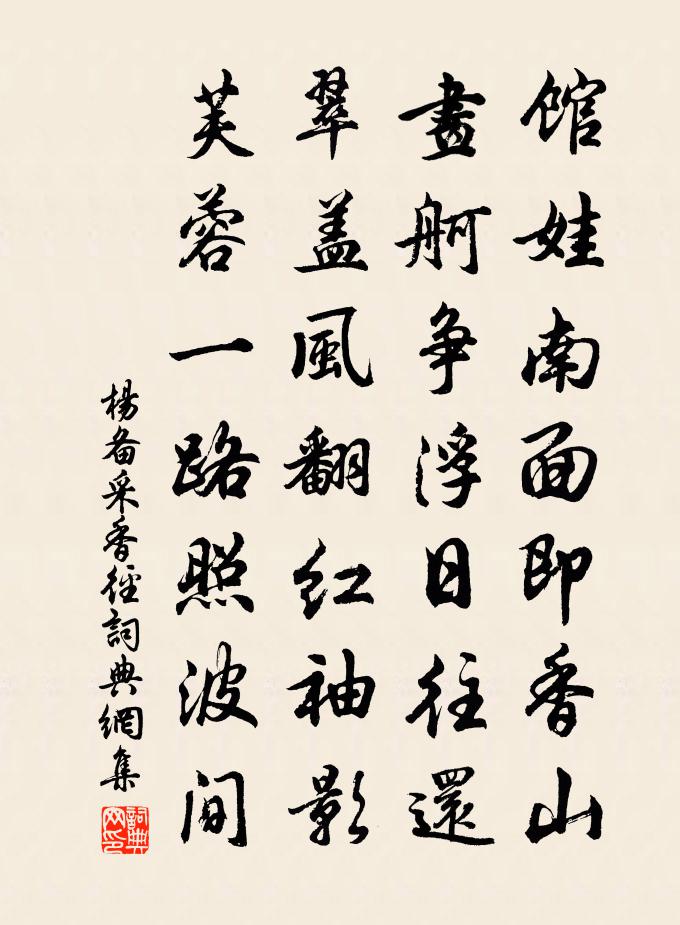 馆娃南面即香山
畫舸争浮日往還
翠盖風翻红袖影
芙蓉一路照波间
楊备采香徑詞典網集
詞典网印